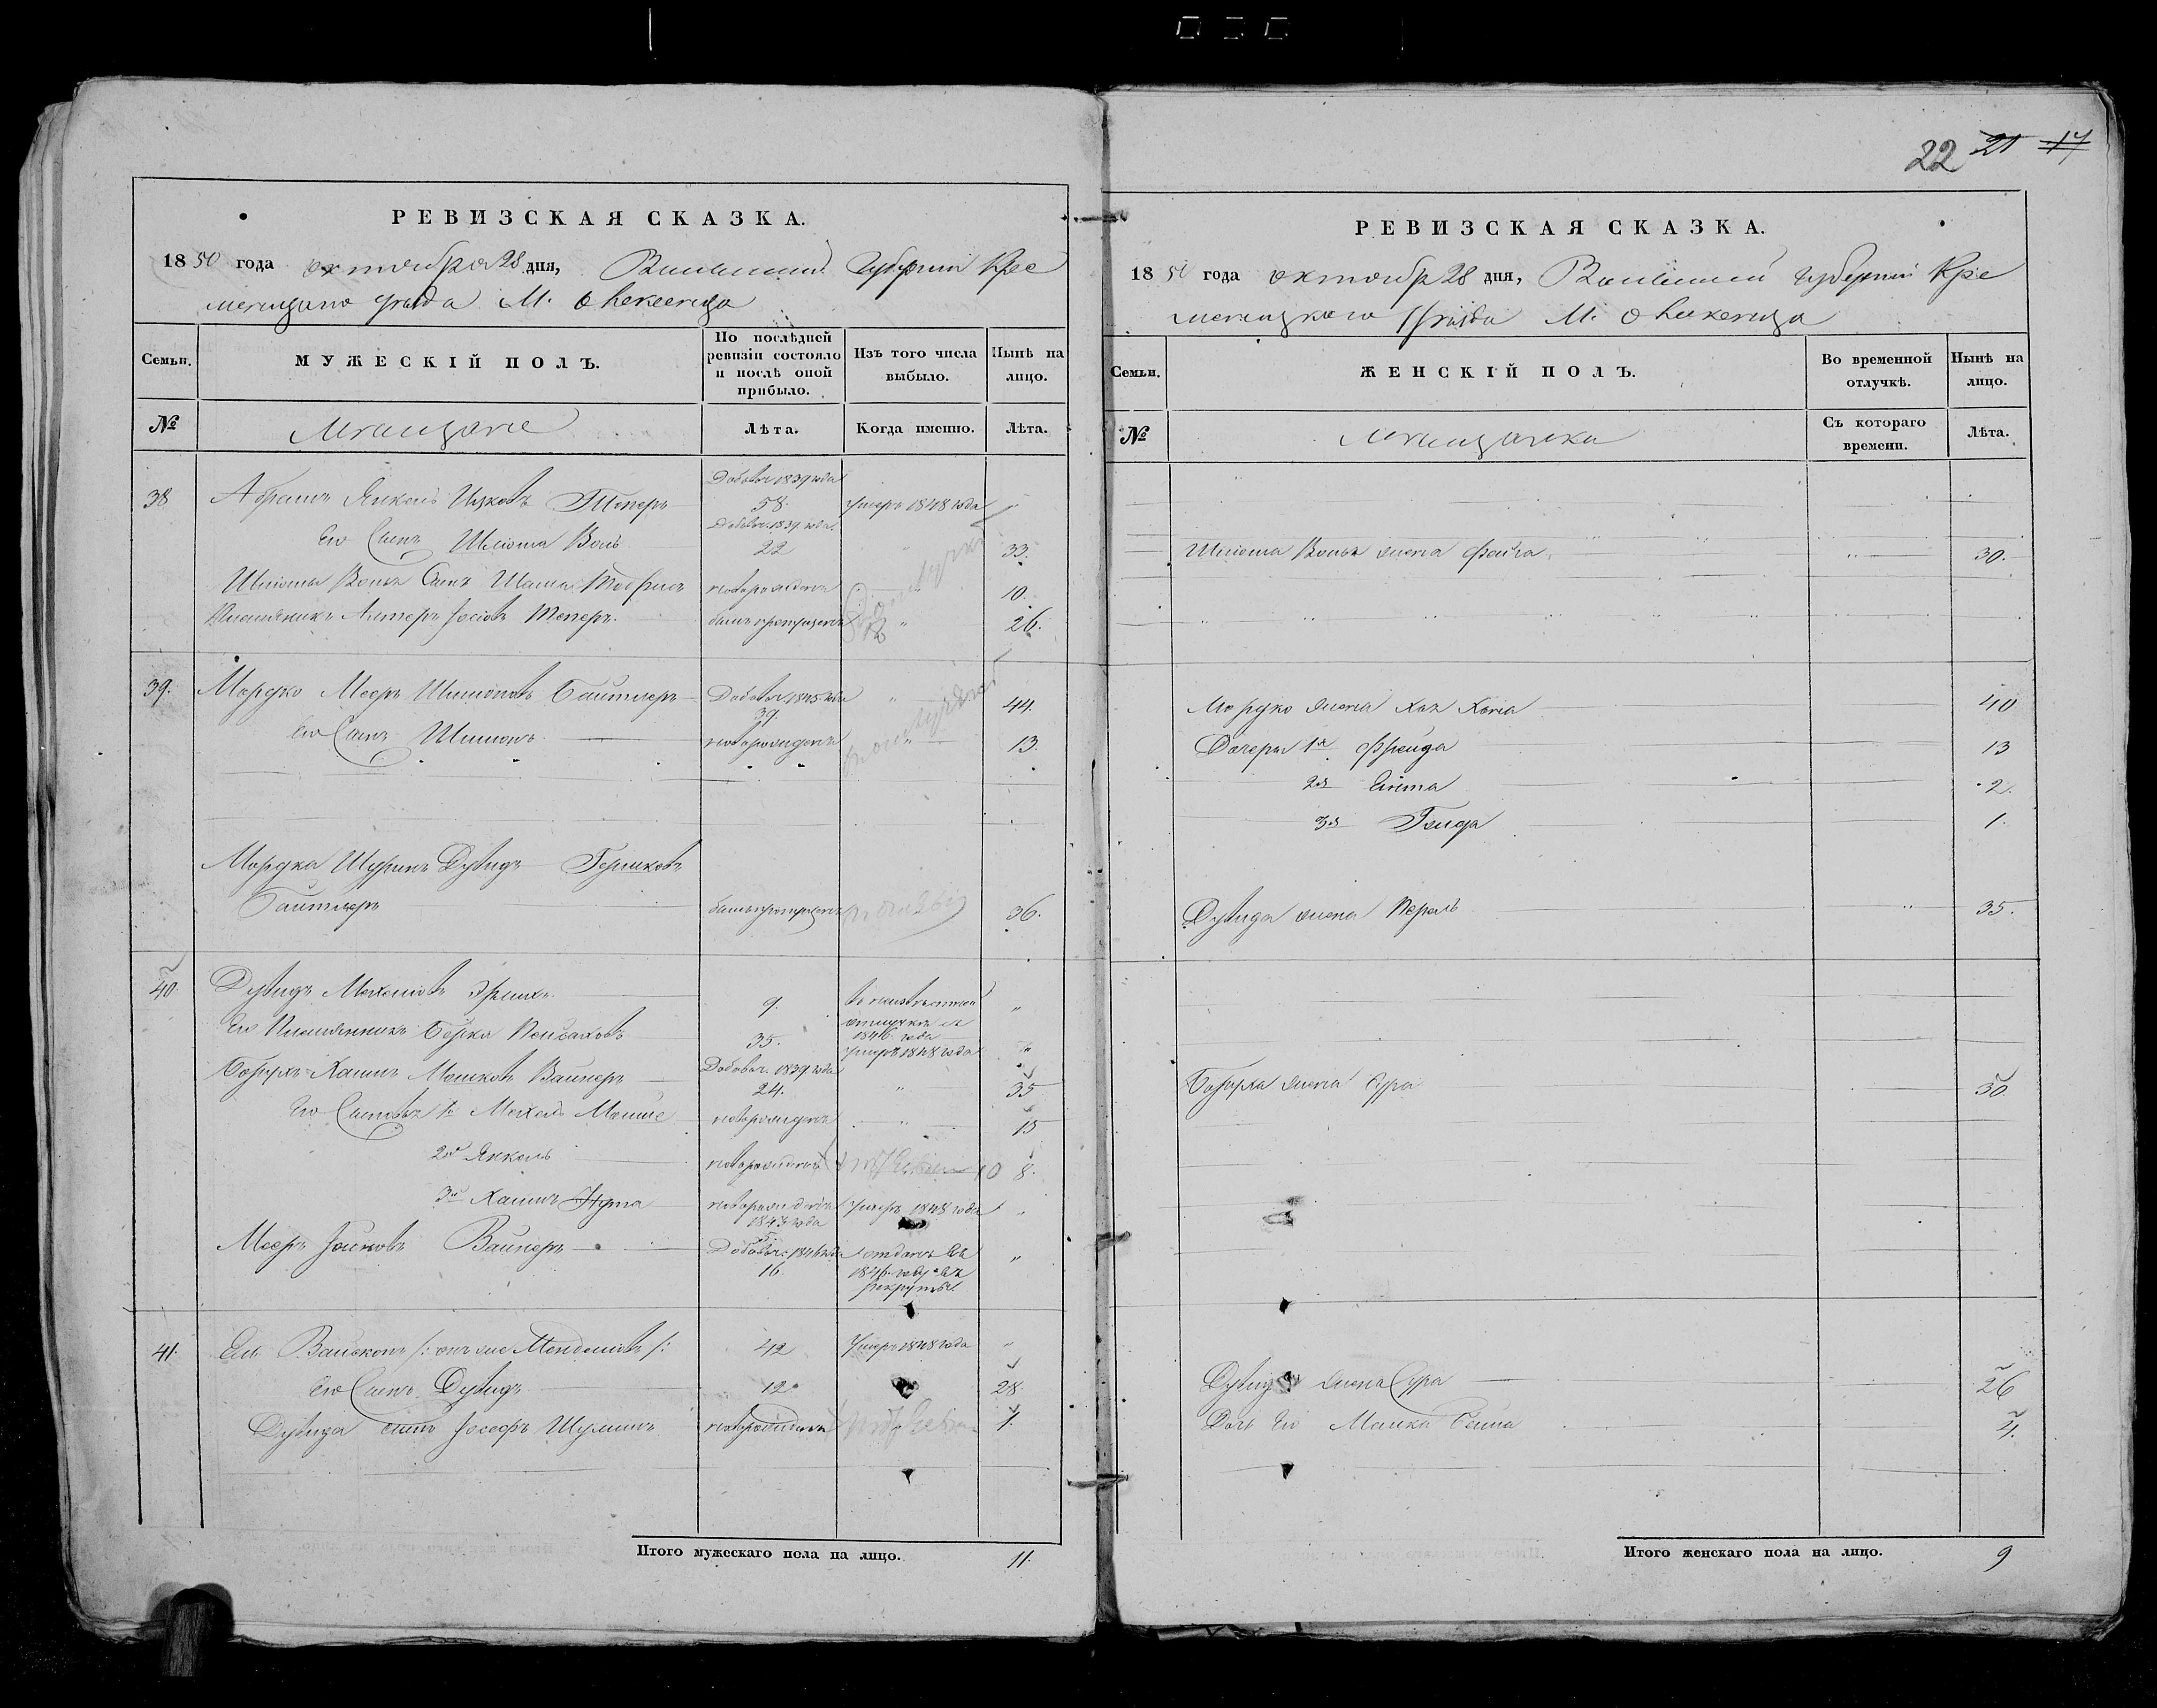 22 21 17
РЕВИЗСКАЯ СКАЗКА.
1850 года октября 28 дня, Волынской Губернии Кре
менецкаго уезда М.
Семьи.
МУЖЕСКІЙ ПОЛЪ.
По послѣдней ревизіи состояло и послѣ оной прибыло.
Изъ того числа выбыло.
Нынѣ на лицо.
№
Мещане
Лѣта.
Когда именно.
Лѣта.
38 Абрамъ Янкель Ицковъ Теперъ Добавоч 1839 года 58. умеръ 1848 года "
Его Сынъ Шліома Воль Добавоч. 1839 года. 22 " 33.
Шліомы Вольа Сынъ новорожденъ " 10.
Племянникъ Алтеръ Іосіовъ Теперъ. былъ пропущенъ " 26.
39. Мордко Мееръ Шимоновъ Байтлеръ Добавоч 1845 года 39 " 44.
Его Сынъ Шимонъ новорожденъ " 13.
Мордка Шуринъ Дувидъ Гершковъ
Байтлеръ былъ пропущенъ 36.
40. Дувидъ Мехелювъ 9. в неизвестной отлучке съ 1846 года "
Его Племянникъ Берка Пейсаховъ 35. умеръ 1848 года "
Борухъ-Хаимъ Мошковъ Вайнеръ Добавоч. 1839 года 24. " 35
Его Сыновья 1й Мехель Мошке новорожденъ " 15
2й Янкель новорожденъ 10 8.
3й Хаимъ Нута новорожденъ 1843 года умеръ 1848 года "
Мееръ Вайнеръ Добавоч. 1846 года 16. отданъ въ 1846 году въ рекруты. "
41. Ель /: онъ же Менделювъ /: 42 Умеръ 1848 года "
Его Сынъ Дувидъ 12 28
Дувида сынъ Іосефъ Шулимъ новорожденъ 1
Итого мужескаго пола на лицо. 11.
РЕВИЗСКАЯ СКАЗКА.
1850 года октября 28 дня, Волынской губернии Кре
менецкаго уезда М.
Семьи.
ЖЕНСКІЙ ПОЛЪ.
Во временной отлучкѣ.
Нынѣ на лицо.
№
Мещанки
Съ котораго времени.
Лѣта.
Шліома Вольа жена Файга " 30.
Мордко жена Хая Хана 40
Дочери 1я Фрейда 13
2я 2.
3я Голда 1.
Дувида жена Перль " 35.
Боруха жена Сура 30.
Дувида жена Сура 26
Дочь Его Малка Бейла 4.
Итого женскаго пола на лицо. 9